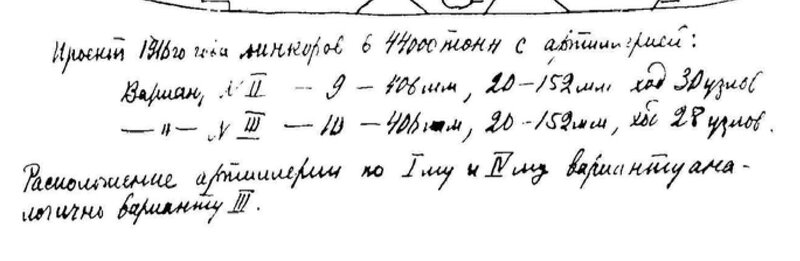 Проект 1916го года линкоров в 44000 тонн с артиллерией:
Вариан, N II — 9 — 406 мм, 20-152 мм. ход 30 узлов
— „ — N III — 10 — 406 мм, 20-152 мм, ход 28 узлов.
Расположение артиллерии по Iму и IVму варианту ана-
логично варианту III.